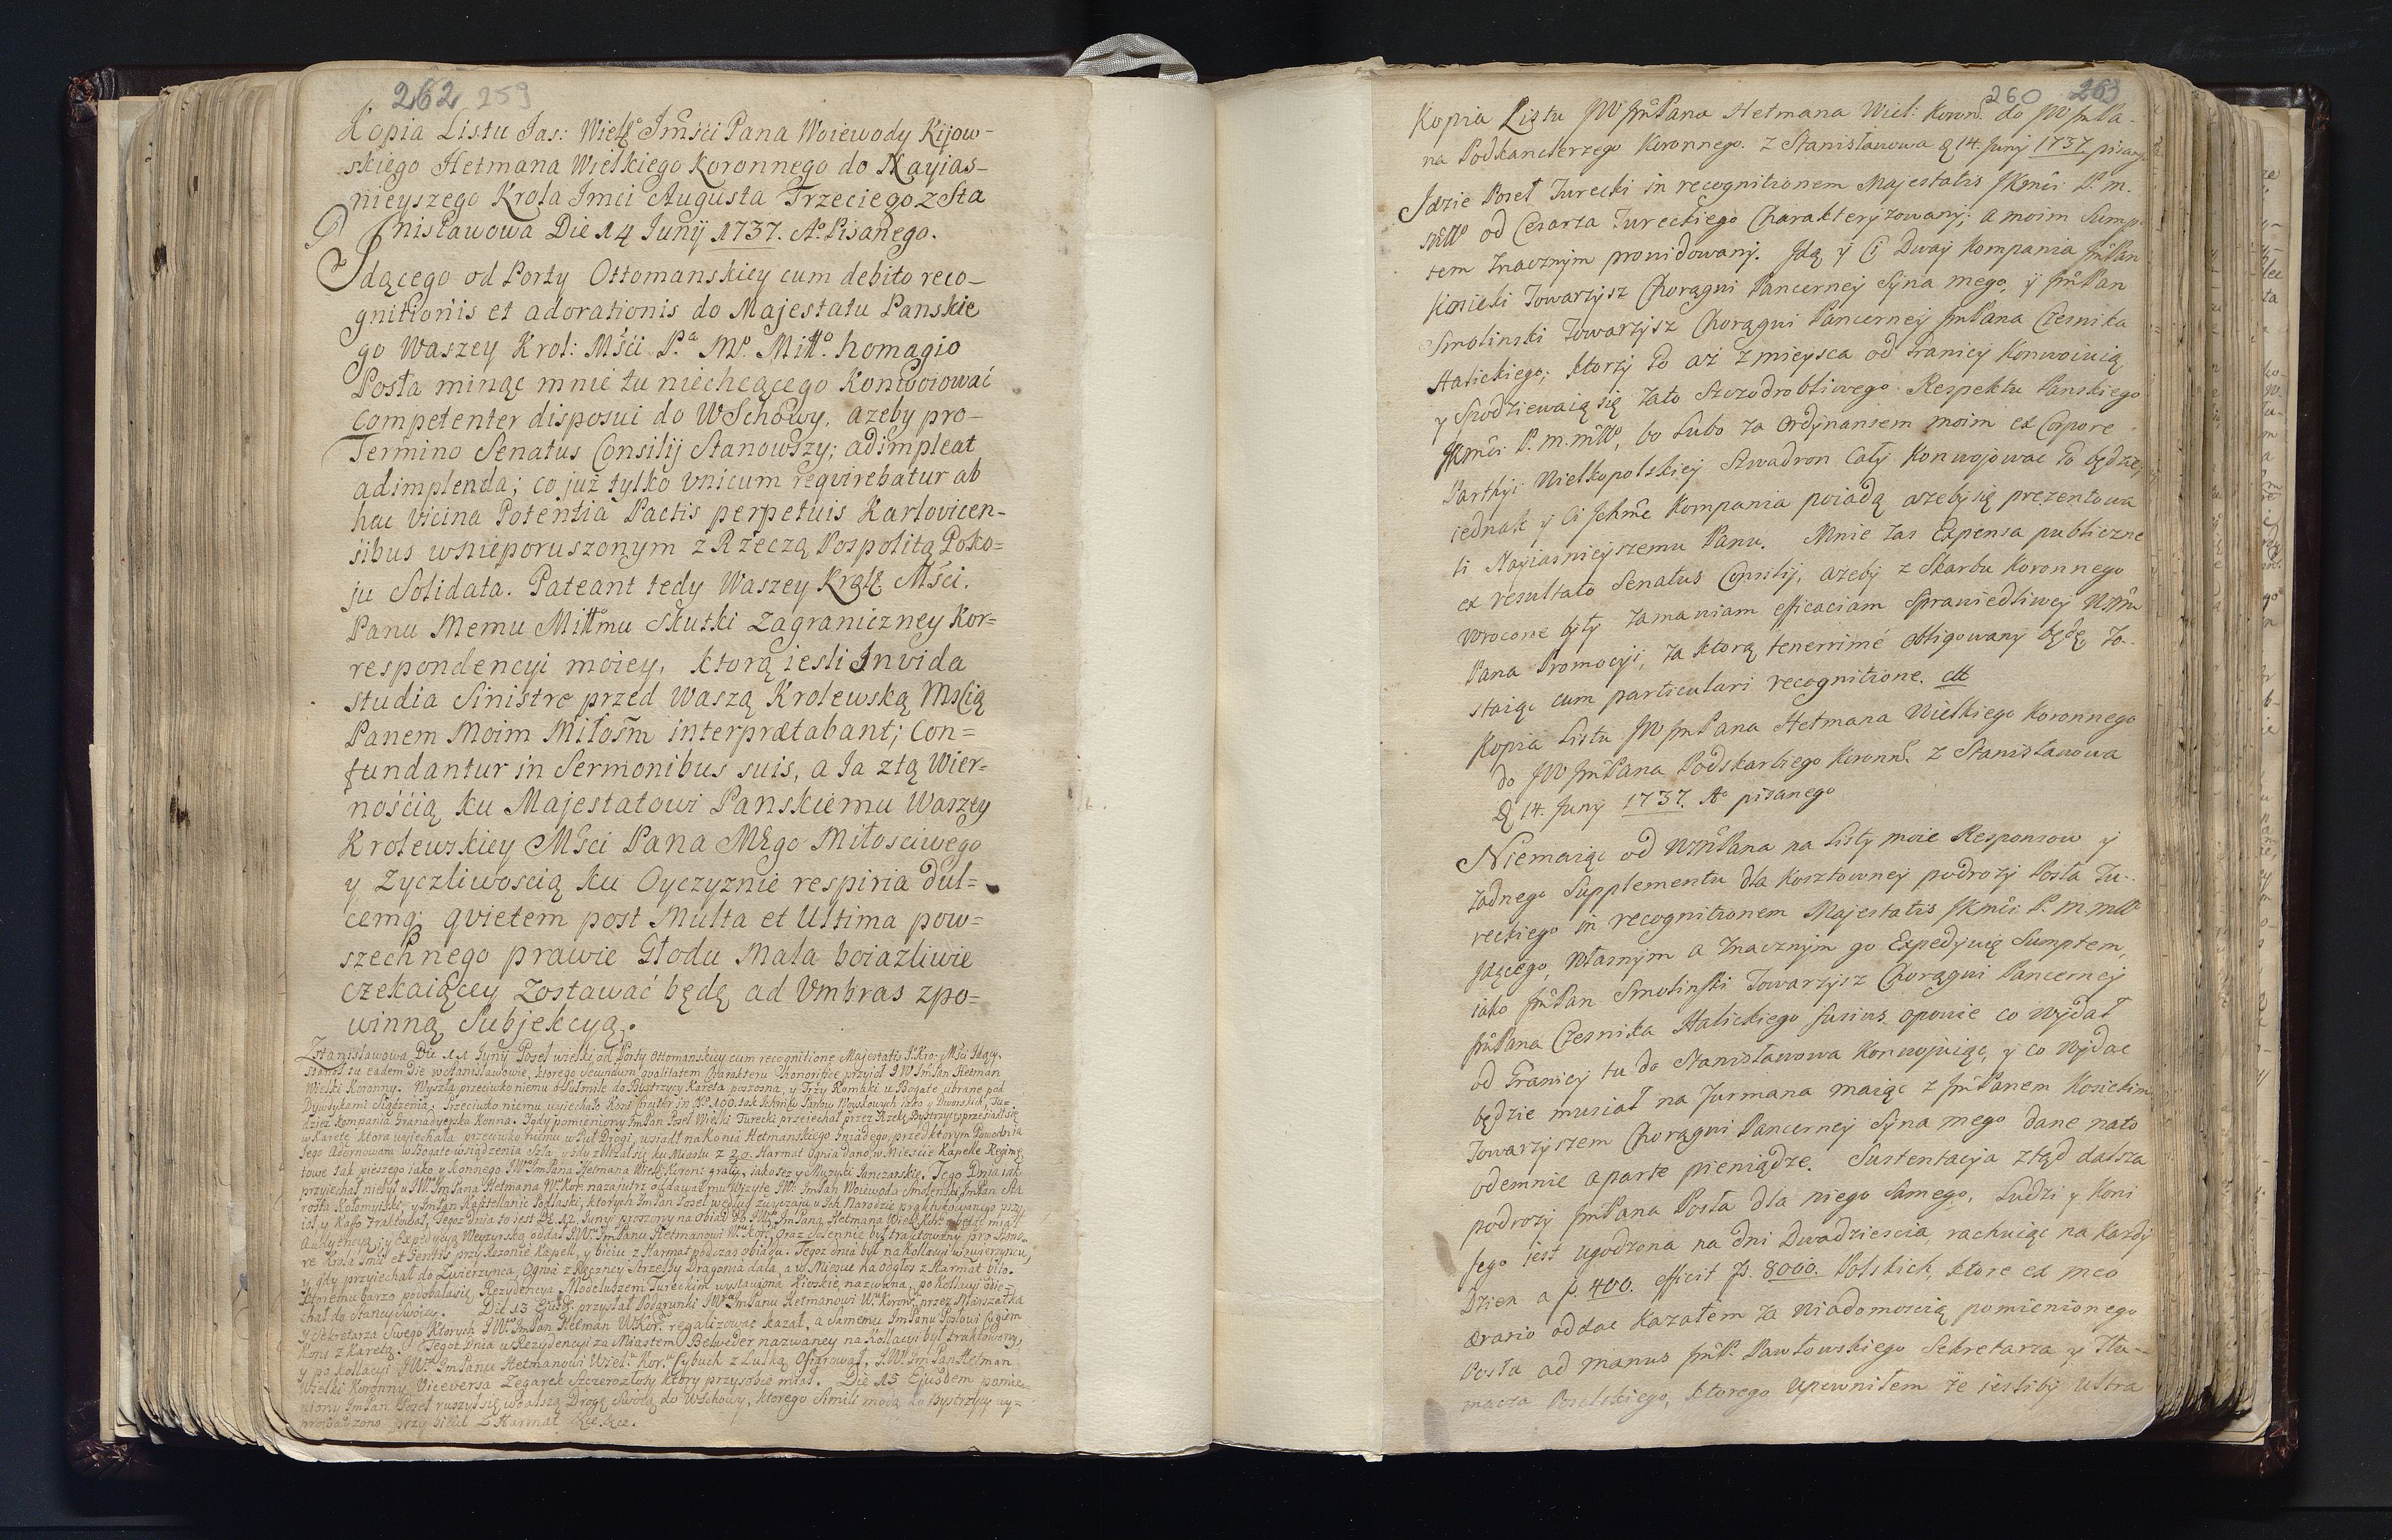 262 259
Kopia Listu Jas: Wielgo Imści Pana Woiewody Kijow-
skiego Hetmana Wielkiego Koronnego do Nayias-
nieyszego Krola Imci Augusta Trzeciego z Sta
nisławowa Die 14 Junij 1737. Ao Pisanego.
Idącego od Porty Ottomanskiey cum debito reco-
gnitionis et adorationis do Majestatu Panskie
go Waszey Krol: Mści Pa Mo Miłło homagio
Posła minąc mnie tu niechcącego Konwoiować
Competenter disposui do WSchowy, azeby pro-
Termino Senatus Consilij Stanowszy; adimpleat
adimplenda; co już tylko vnicum reqvirebatur ab
hac vicina Potentia Pactis perpetuis Karlovicen-
sibus wnieporuszonym z Rzeczą Pospolitą Poko=
ju Solidata. Pateant tedy Waszey Krolę Mści.
Panu Memu Miłłmu skutki Zagraniczney Kor=
respondencyi moiey, ktorą iesli Invida
studia Sinistre przed Waszą Krolewską Mscią
Panem Moim Miłosm interprætabant; Con=
fundantur in Sermonibus suis, a Ia ztą Wier-
nościa ku Majestatowi Panskiemu Waszey
Krolewskiey Mści Pana Mego Miłosciwego
y Zyczliwoscią ku Oyczyznie respiria dul=
cemq; qvietem post Multa et Ultima pow=
szechnego prawie Głodu Mala boiazliwie
czekaiącey Zostawać będę ad Vmbras zpo=
winną Subjekcyą.
Zstanisławowa Die 11 Junij Poseł wielki od Porty Ottomanskiey cum recognitione Majestatis J: Kro: Mści Idący.
stanoł tu eadem Die w Stanisławowie, ktorego secundum qvalitatem Charakteru honorifice przyioł JW ImPan Hetman
Wielki Koronny. Wyszła przeciwko niemu o Puł mile do Bystrzycy Kareta poszosna, y Trzy Rumaki u Bogate ubrane pod
Dywdykami Siądzenia. Przeciwko niemu wyiechało Koni circiter in No 100. tak Ichmść Panow Woyskowych iako y Dworskich, tu-
dziesz Kompania Granadyerska Konna. Igdy pomieniony ImPan Poseł Wielki Turecki przeiechał przez Rzekę Bystrzycę przesiadł się
w Karetę ktora wyiechała przeciwko niemu w Puł Drogi, wsiadł na Konia Hetmanskiego Gniadego, przed ktorym Powodnia
Iego Adornowana w Bogate wsiądzenia Szła, y gdy zblizał się ku Miastu z 20. Harmat Ognia dano, w Miescie Kapele Regimę
towe tak pieszego iako y Konnego JWo ImPana Hetmana Wielg: Koron: grały, iako tez y Muzyki Janczarskie. Tego Dnia iak
przyiechał niebył u JWo ImPana Hetmana Wo Kor: nazajutrz oddawał mu Wizytę JW: ImPan Woiewoda Smolenski ImPan Sta
rosta Kołomyiski, y ImPan Kasztellanic Podlaski, ktorych ImPan Poseł według zwyczaju w Ich Narodzie praktykowanego przy
ioł y Kafo traktował, Tegoz Dnia to iest D: 12 Junyi proszony na Obiad do JWo ImPana Hetmana Wielk: Kor: będąc miał
Audyencyą, y Expedycyą Wezyrską oddał JWu ImPanu Hetmanowi Wu Kor: Oraz Solennie był traktowany pro Hono-
re Krola Imci et Gentis przy Rezonie Kapell, y biciu z Harmat podczas obiadu. Tegoz dnia był na Kollacyi w zwierzyncu,
y gdy przyiechał do Zwierzynca, Ognia z Ręczney Strzelby Dragonia dała, a w Miescie na odgłos z Harmat bito.
Ktoremu barzo podobałasię Rezydencya, Modeluszem Tureckim wystawiona Kioskie nazwana, po Kollacyi odie-
chał do Stancyi swoiey. Die 13 Ejusdę przysłał Podarunki JWu ImPanu Hetmanowi Wu Koronu przez Marszałka
y Sekretarza Swego Ktorych JWo ImPan Hetman W: Kor: regalizowac kazał, a Samemu ImPanu Posłowi Cugiem
Koni z Karetą. Tegoz Dnia w Rezydencyi za Miastem Belweder nazwaney na Kollacyi był traktowany,
y po Kollacyi JWu ImPanu Hetmanowi Wielu Koru Cybuch z Lulką Ofiarował, JWo ImPan Hetman
Wielki Koronny Viceversa Zegarek Szczerozłoty ktory przy sobie miał. Die 15 Ejusdem pomie-
niony ImPan Poseł ruszył się w dalszą Drogę Swoią do WSchowy, ktorego Simili modo ko Bystrzycy wy=
prowadzono przy biciu z Harmat &c &c.
260 263
Kopia Listu JW JmPana Hetmana Wiel: Koronn. do JW JmPa-
na Podkanclerzego Koronnego. z Stanisławowa D 14. Junij 1737. pisany
Idzie Poseł Turecki in recognitionem Majestatis JKmci P. m.
młło od Cesarza Tureckiego Charakteryzowany; a moim Sump-
tem znacznym prowidowany. Idą y Ci Dway Kompania JmPan
Kosicki Towarzysz Chorągwi Pancerney Syna mego, y JmPan
Smolinski Towarzysz Chorągwi Pancerney JmPana Czesnika
Halickiego; ktorzy to aż z mieysca od Granicy Konwoiuią
y Spodziewaią się zato Szczodrobliwego Respektu Panskiego
JKmci P. m. młło, bo Lubo za Ordynansem moim ex Corpore
Parthyi Wielkopolskiey Szwadron Cały Konwojowac to będzie,
iednak y Ci Ichmć Kompania poiadą azeby się prezentowa
li Nayiasnieyszemu Panu. Mnie zas Expensa publiczne
ex resultato Senatus Consilij, azeby z Skarbu Koronnego
wrocone były zamawiam efficaciam Sprawiedliwey WmM
Pana Promocyi, za ktorą tenerrimé obligowany będę zo-
staiąc cum particulari recognitione. ett
Kopia Listu JW JmPana Hetmana Wielkiego Koronnego
do JW JmPana Podskarbiego Koronn. z Stanisławowa
D 14. Junij 1737. Ao pisanego
Niemaiąc od WmPana na Listy moie Responsow y
żadnego Supplementu dla Kosztowney podroży Posła Tu-
reckiego in recognitionem Majestatis JKmci P. m. młło
Idącego, własnym a znacznym go Expedyuię Sumptem,
iako JmPan Smolinski Towarzysz Chorągwi Pancerney
JmPana Czesnika Halickiego fusius opowie co wydał
od Granicy tu do Stanisławowa Konwojuiąc, y co wydac
będzie musiał na Furmana maiąc z JmPanem Kosickim
Towarzyszem Chorągwi Pancerney Syna mego dane nato
odemnie aparte pieniądze. Sustentacyia ztąd dalsza
podroży JmPana Posła dla niego Samego, Ludzi y Koni
Jego jest ugodzona na dni Dwadziescia, rachuiąc na Kazdy
Dzien a f. 400. efficit f. 8000. Polskich, ktore ex meo
ærario oddac kazałem za Wiadomoscią pomienionego
Posła ad manus JmP. Pawłowskiego Sekretarza y Tłu-
macza Poselskiego, ktorego upewniłem że iestliby Ultra